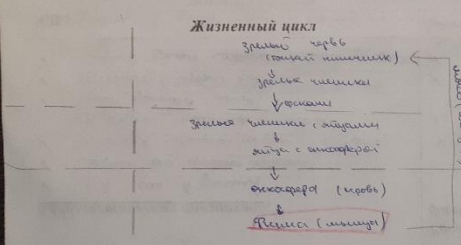 Жизненный цикл
зрелый червь
(тощий кишечник)
зрелые членики
фекали
зрелые членики с яйцами
яйца с онкосферой
онкосфера (кровь)
Финна (мышцы)